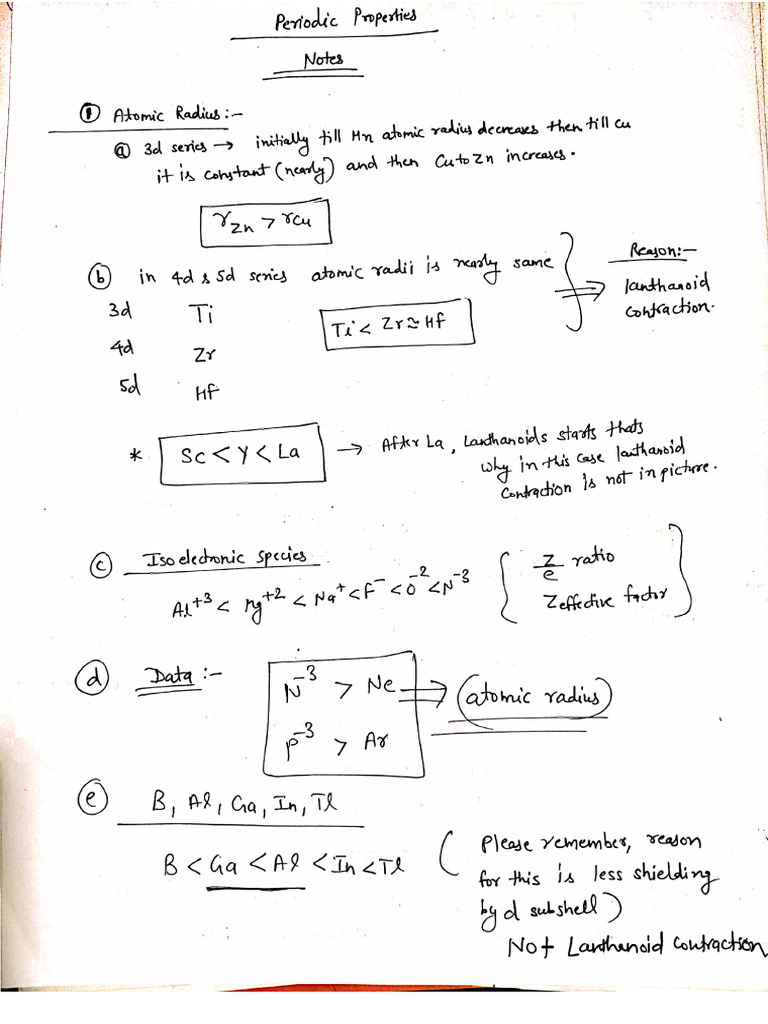 Periodic Properties
Notes
① Atomic Radius:-
ⓐ 3d series → initially till Mn atomic radius decreases then till Cu
it is constant (nearly) and then Cu to Zn increases.
r_Zn > r_Cu
ⓑ in 4d & 5d series atomic radii is nearly same } ⇒ Reason:-
lanthanoid
contraction.
3d Ti
4d Zr
5d Hf
Ti < Zr ≅ Hf
* Sc < Y < La → After La, Lanthanoids starts thats
why in this case lanthanoid
contraction is not in picture.
ⓒ Isoelectronic species
Al⁺³ < Mg⁺² < Na⁺ < F⁻ < O⁻² < N⁻³
{ Z/e ratio
Zeffective factor }
ⓓ Data:-
N⁻³ > Ne ⇒ (atomic radius)
P⁻³ > Ar
ⓔ B, Al, Ga, In, Tl
B < Ga < Al < In < Tl
(Please remember, reason
for this is less shielding
by d subshell)
Not Lanthanoid contraction